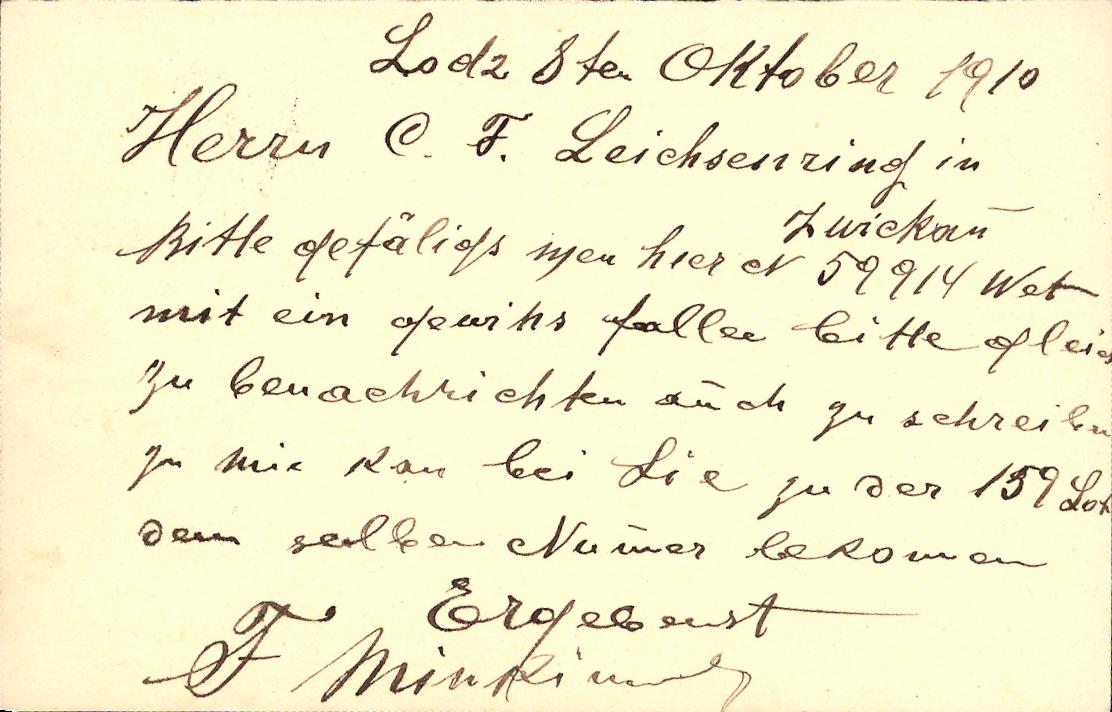 Lodz 8ten Oktober 1910
Herrn C. F. Leichsenring in
Zwickau
Bitte gefäligs hier N 59914
mit ein gewihs fallen bitte gleich
zu benachrichten auch zu schreiben
zu mir kan bei Sie zu der 159 Lot
dem selben Numer bekomen
Ergebenst
F